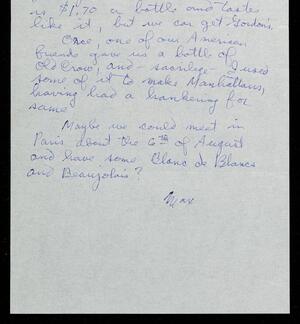 is $1.70 a bottle and tastes
like it, but we can get Gordon's.
Once, one of our American
friends gave us a bottle of
Old Crow, and - sacrilege - I used
some of it to make Manhattans,
having had a hankering for
same.
Maybe we could meet in
Paris about the 6th of August
and have some Blanc de Blancs
and Beaujolais?
Max